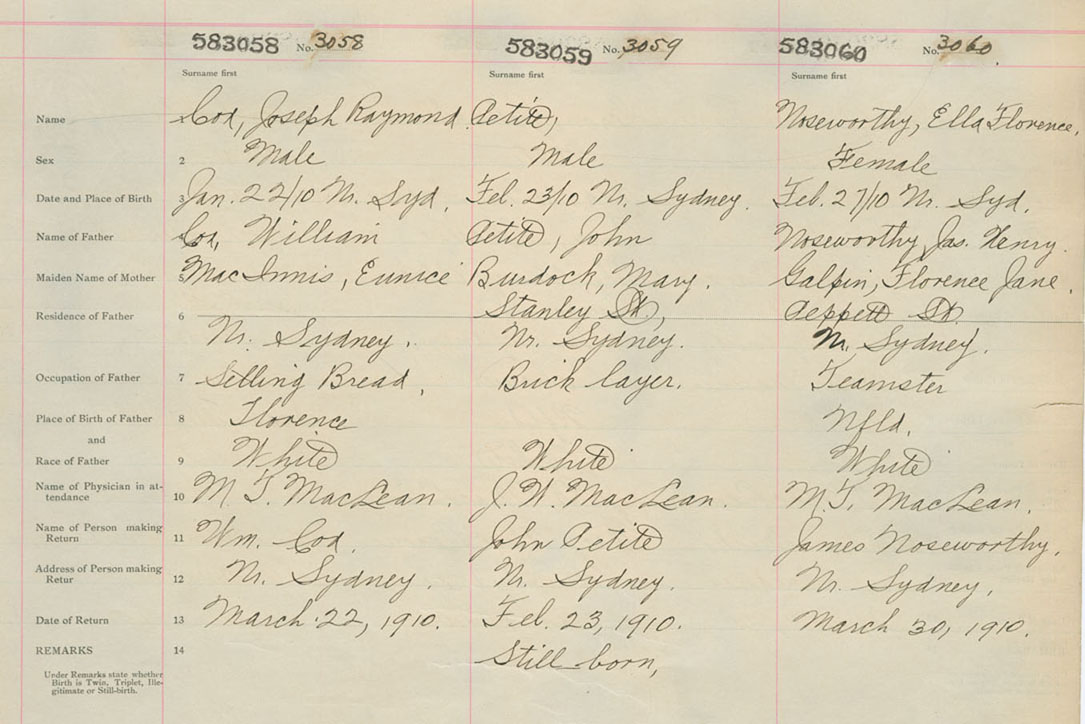 583058 No. 3058 583059 No. 3059 583060 No. 3060.
Surname first Surname first Surname first
Name 1 Cox, Joseph Raymond. Petite, Noseworthy, Ella Florence.
Sex 2 Male Male Female
Date and Place of Birth 3 Jan. 22/10 Nr. Syd. Feb. 23/10 Nr. Sydney. Feb. 27/10 Nr. Syd.
Name of Father Cox, William Petite, John Noseworthy, Jas. Henry.
Maiden Name of Mother 5 MacInnis, Eunice Burdock, Mary. Galpin, Florence Jane.
Stanley St., Peppett St.
Residence of Father 6
Nr. Sydney. Nr. Sydney. Nr. Sydney.
Occupation of Father 7 Selling Bread, Brick layer. Teamster
Place of Birth of Father 8 Florence Nfld.
and
Race of Father 9 White White White
Name of Physician in at-
tendance 10 M. T. MacLean. J. W. MacLean. M. T. MacLean.
Name of Person making
Return 11 Wm. Cox. John Petite James Noseworthy.
Address of Person making
Retur 12 Nr. Sydney. Nr. Sydney. Nr. Sydney.
Date of Return 13 March 22, 1910. Feb. 23, 1910. March 30, 1910.
REMARKS 14 Still born,
Under Remarks state whether
Birth is Twin, Triplet, Ille-
gitimate or Still-birth.